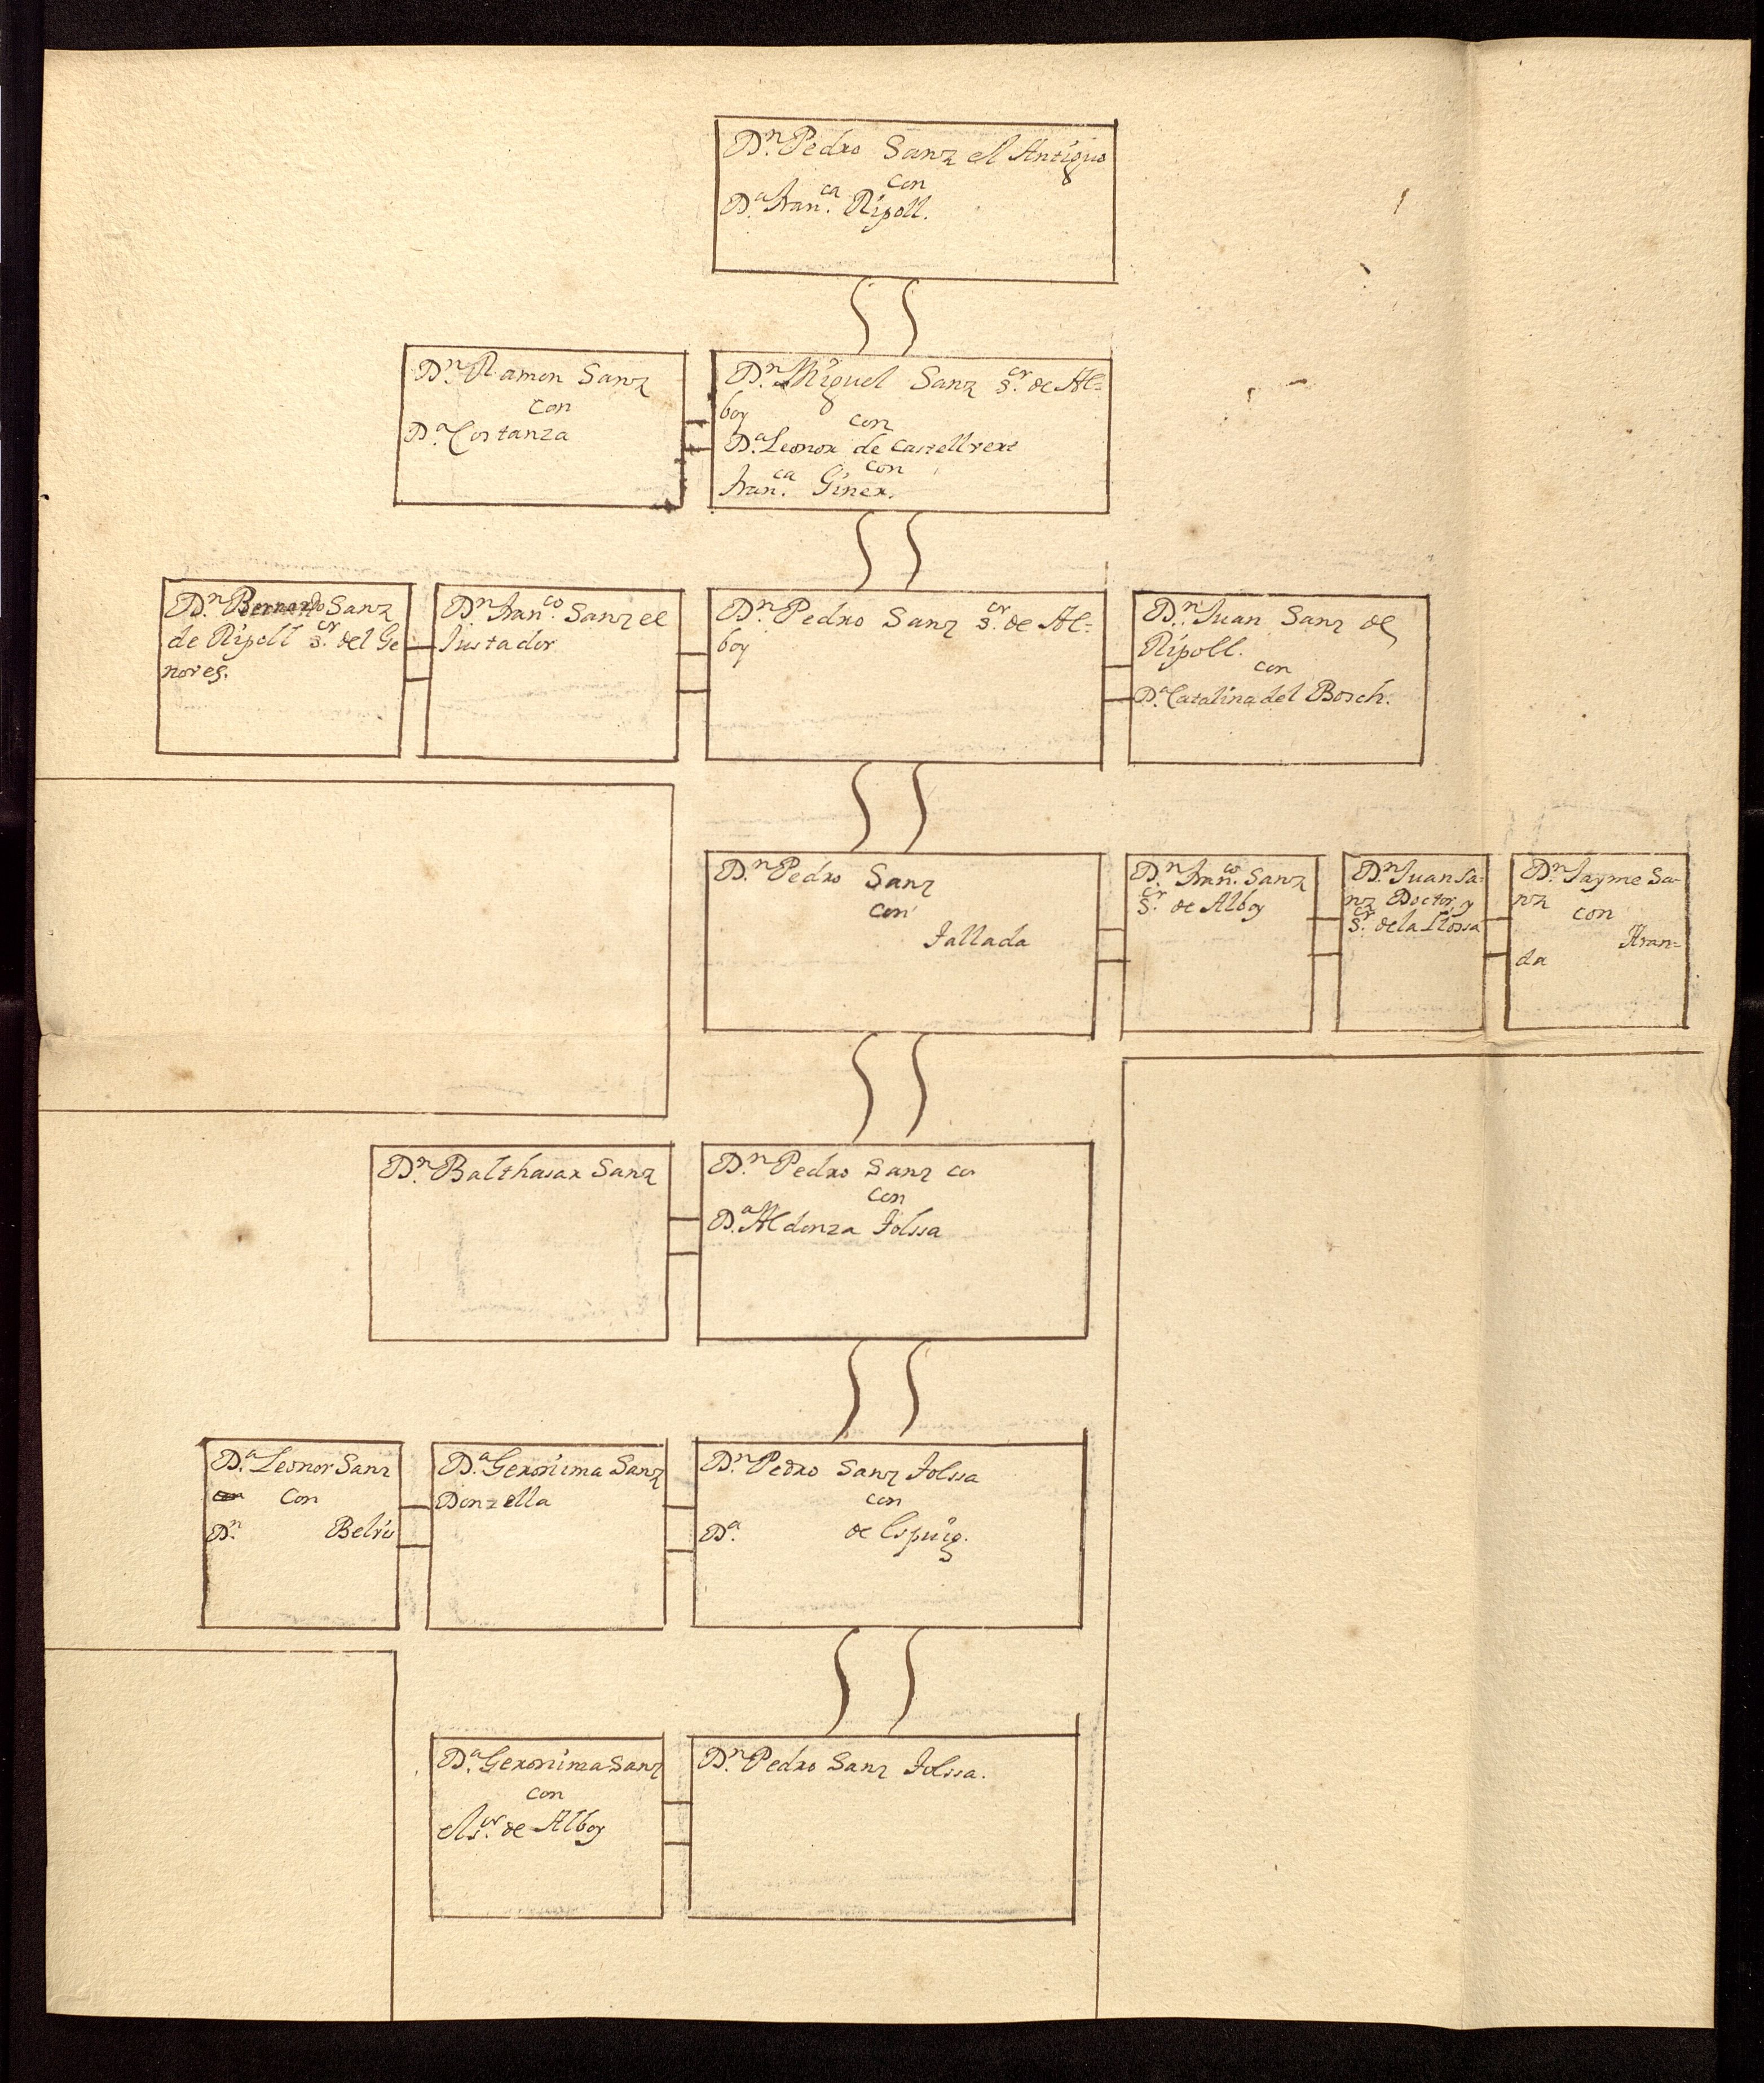 Dn. Pedro Sanz el Antiguo
con
Da. Franca. Ripoll.
Dn. Ramon Sanz
con
Da. Costanza
Dn. Miguel Sanz sor. de Al=
boy
con
Da. Leonor de Castellvert
con
Franca. Giner.
Dn. Bernardo Sanz
de Ripoll sor. del Ge
noves.
Dn. Franco. Sanz el
Justador
Dn. Pedro Sanz sor. de Al=
boy
Dn. Juan Sanz de
Ripoll.
con
Da. Catalina del Bosch.
Dn. Pedro Sanz
con
Tallada
Dn. Franco. Sanz
sor. de Alboy
Dn. Juan Sa=
nz Doctor y
sor. de la Llossa
Dn. Jayme Sa-
nz
con
Aran=
da
Dn. Balthasar Sanz
Dn. Pedro Sanz co
con
Da. Aldonza Jolssa
Da. Leonor Sanz
con
Dn. Belvis
Da. Geronima Sanz
Donzella
Dn. Pedro Sanz Jolssa
con
Da. de Espuig.
Da. Geronima Sanz
con
el sor. de Alboy
Dn. Pedro Sanz Jolssa.